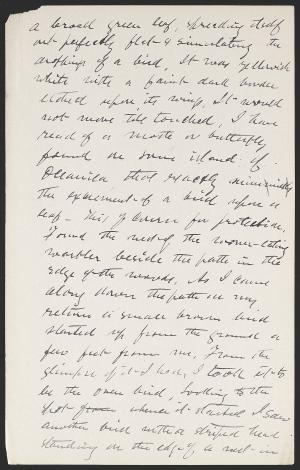 a broad green leaf, spreading itself
out perfectly flat & simulating the
droppings of a bird, It was yellowish
white with a faint dark border
etched upon its wings, It would
not move till touched, I have
read of a moth or butterfly
found on some island of
Oceanica that exactly
the excrement of a bird upon a
leaf — This of course for protection.
Found the nest of the worm-eating
warbler beside the path in the
edge of the woods, As I came
along down the path on my
return a small brown bird
started up from the ground a
few feet from me, From the
glimpse of it I had, I took it to
be the oven bird, looking to the
spot from where it started I saw
another bird with a striped head
standing on the edge of a nest in